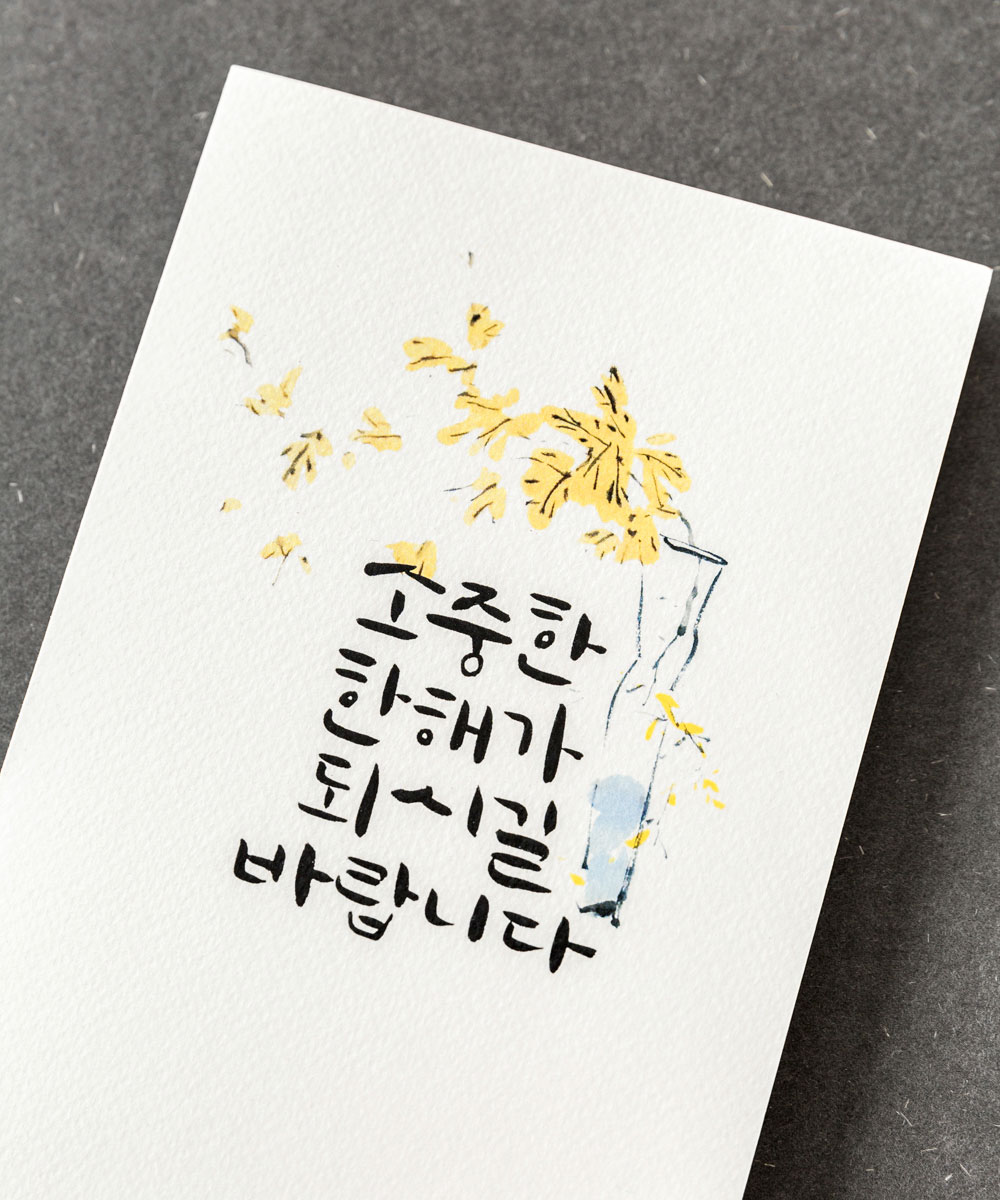 소중한
한해가
되시길
바랍니다